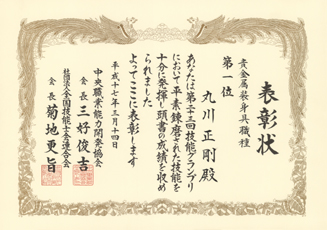 表彰状
貴金属装身具職種
第一位
丸川正剛殿
あなたは第二十三回技能グランプリ
において平素錬磨された技能を
十分に発揮し頭書の成績を収め
られました
よってここに表彰します
平成十七年三月十四日
中央職業能力開発協会
会長 三好俊吉
社団法人全国技能士会連合会
会長 菊地更旨